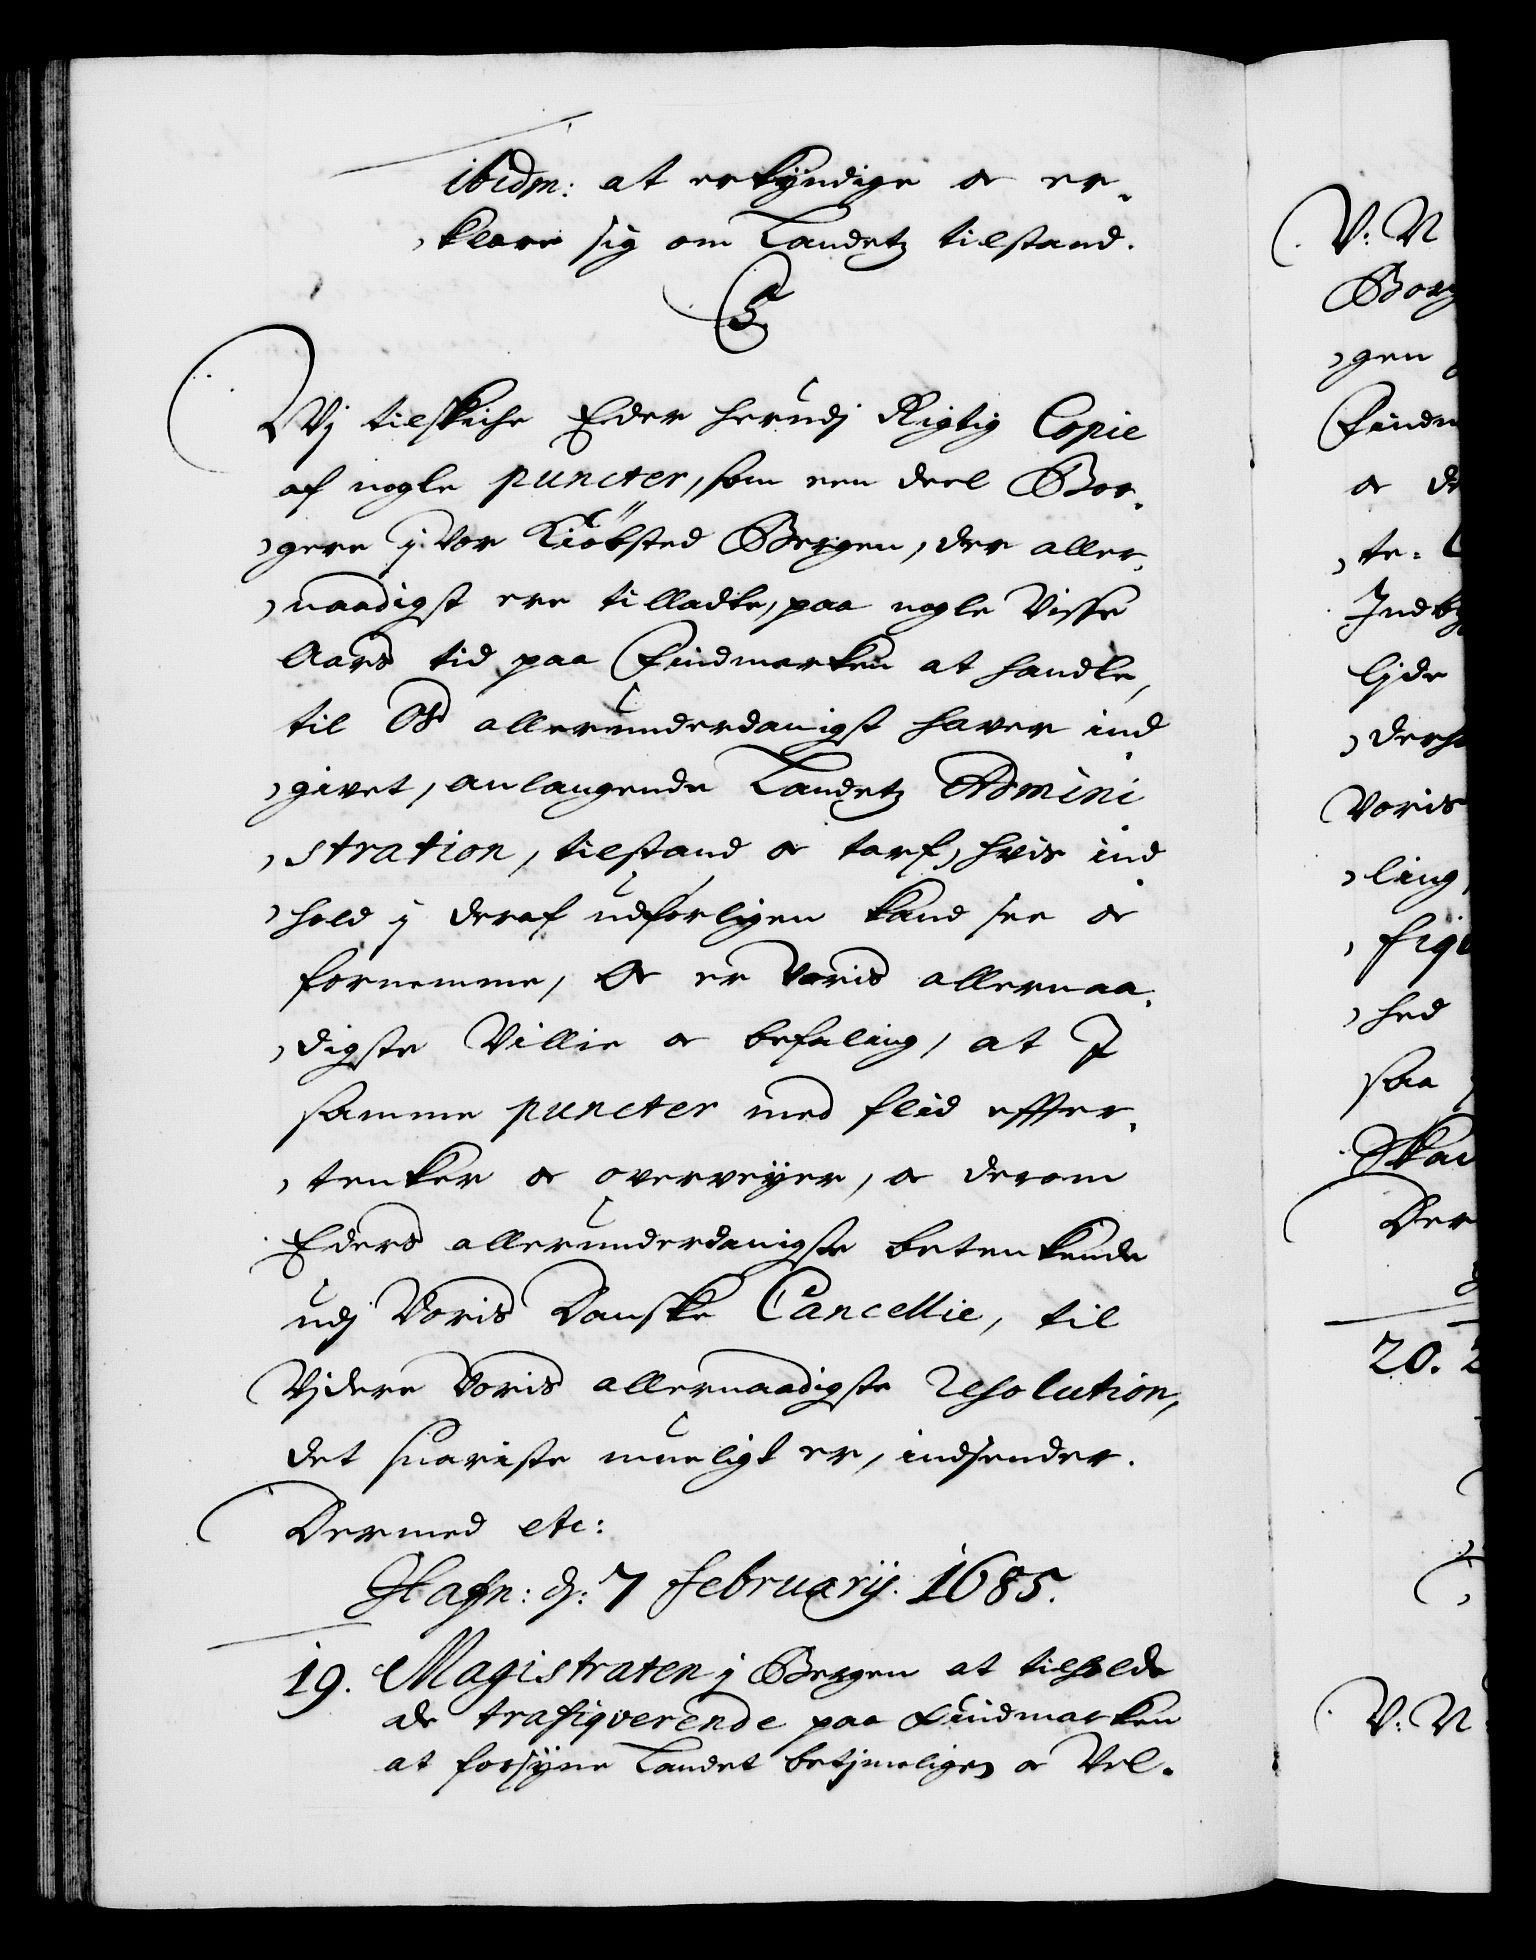 ibidm: at erkyndige oc er-
klære sig om Landetz tilstand.
C5
Wj tilskiche Eder herudj Rigtig Copie
af nogle puncter, som een deel Bor-
gere i Vor Kiöbsted Bergen, der aller-
naadigst ere tilladte, paa nogle Visse
Aars tid paa Findmarken at handle,
til Os allerunderdanigst haver ind
givet, anlangende Landetz Admini
stration, tilstand oc tarf, hvis ind
hold i deraf udførligen kand see oc
fornemme, Oc er Voris allernaa-
digste Villie oc befaling, at I
samme puncter med flid effter-
tenker oc overveyer, oc derom
Eders allerunderdanigste betenkende
udj Voris Danske Cancellie, til
Vjdere Voris allernaadigste resolution,
det snariste mueligt er, indsender.
Dermed etc:
Hafn: d: 7 februarij. 1685.
19. Magistraten i Bergen at tilholde
de trafiqverende paa Findmarken
at forsyne Landet betjmeligen oc Vel-
V: N
Borg
gen
Findm
oc de
te.
Indby
ljde
ders
Voris
ling
fiqv
hed
saa
Skad
Der
20. 2
V: N